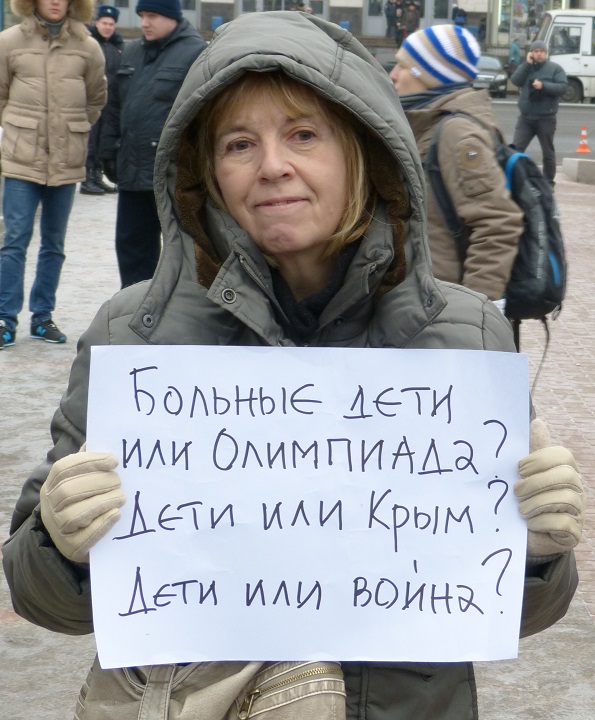 Больные дети
или Олимпиада?
Дети или Крым?
Дети или война?